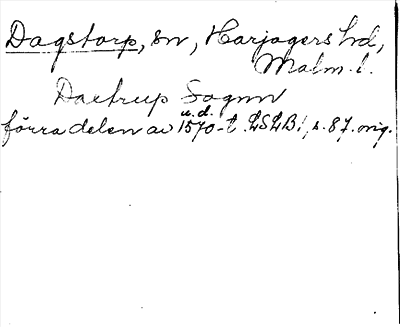 Dagstorp, sn, Harjagers hd,
Malm. l.
Daetrup Sognn
u.d.
förra delen av 1570-t. LSLB, s. 87. orig.